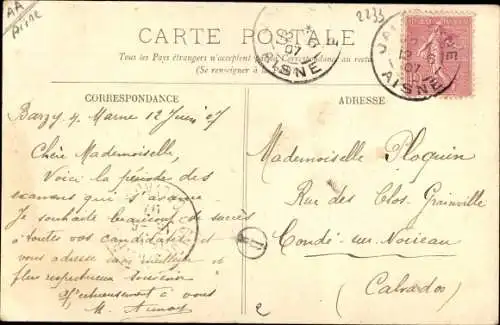 AA
Aisne
2233
CARTE POSTALE
Tous les Pays étrangers n'acceptent pas la Correspondance au recto
(Se renseigner à la
12 6
07
AISNE
12 6
07
AISNE
CORRESPONDANCE
Barzy s/ Marne 12 Juin 07
Chère Mademoiselle,
Voici la période des
examens qui s'avance.
Je souhaite beaucoup de succès
à toutes vos candidates et
vous adresse mon meilleur et
plus respectueux souvenir
à vous
M.
ADRESSE
Mademoiselle Ploquin
Rue des Clos Grainville
Condé-sur-Noireau
(Calvados)
2